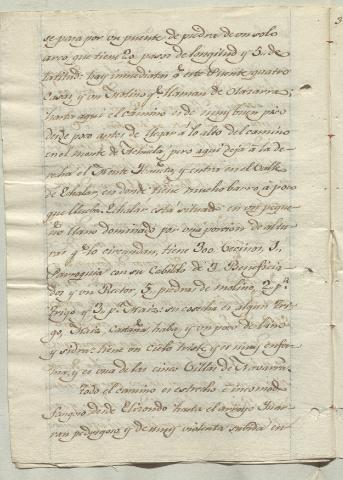 se pasa por un puente de piedra de un solo
arco, que tiene 20 pasos de longitud y 5 de
latitud: hay inmediatas a este Puente quatro
Casas, y un Molino q.e llaman de
hasta aqui el camino es de muy buen piso
desde poco antes de llegar à lo alto del camino
en el monte de Achuela, pero aqui deja à la de
recha el Monte y entra en el Valle
de Echalar, en donde tiene mucho barro à poco
que llueba. Echalar està situado en un peque
ño llano dominado por una porcion de altu
ras q.e lo circundan, tiene 300 vecinos, 1
Parroquia con su Cabildo de 3 Beneficia
dos y un Rector, 5 piedras de molino, 2 p.a
trigo y 3 p.a Maiz: su cosecha es algun tri
go, Maiz, Castaña, haba, y un poco de lino
y sidra: tiene un cielo triste, y es muy enfer
ma, y es una de las cinco Villas de Navarra.
Todo el camino es estrecho è incomod
desde Elizondo hasta el arroyo
pedregoso y de muy violenta subida en